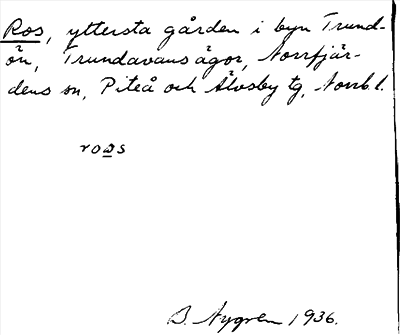 Ros, yttersta gården i byn Trund-
ön, Trundavans ägor, Norrfjär-
dens sn, Piteå och Älvsby tg, Norrb. l.
ros
B. Nygren 1936.